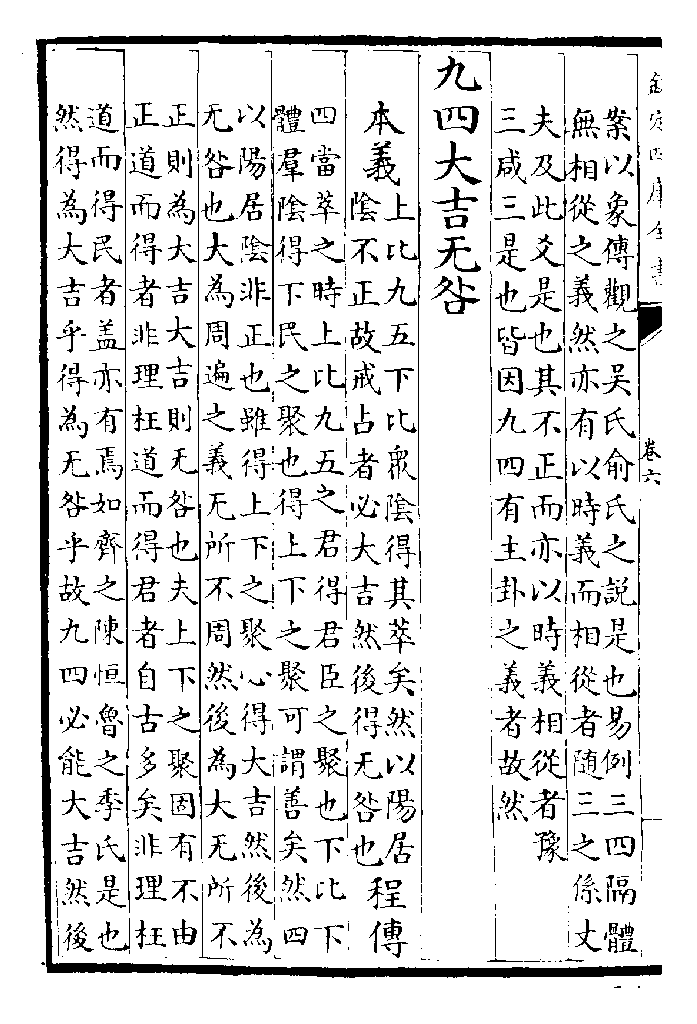 欽定四庫全書
卷六
案以象傳觀之吳氏俞氏之説是也易例三四隔體
無相從之義然亦有以時義而相從者隨三之係丈
夫及此爻是也其不正而亦以時義相從者豫
三咸三是也皆因九四有主卦之義者故然
九四大吉无咎
本義
上比九五下比衆陰得其萃矣然以陽居
陰不正故戒占者必大吉然後得无咎也
程傳
四當萃之時上比九五之君得君臣之聚也下比下
體羣陰得下民之聚也得上下之聚可謂善矣然四
以陽居陰非正也雖得上下之聚心得大吉然後為
无咎也大為周遍之義无所不周然後為大无所不
正則為大吉大吉則无咎也夫上下之聚固有不由
正道而得者非理枉道而得君者自古多矣非理枉
道而得民者盖亦有焉如齊之陳恒魯之季氏是也
然得為大吉乎得為无咎乎故九四必能大吉然後